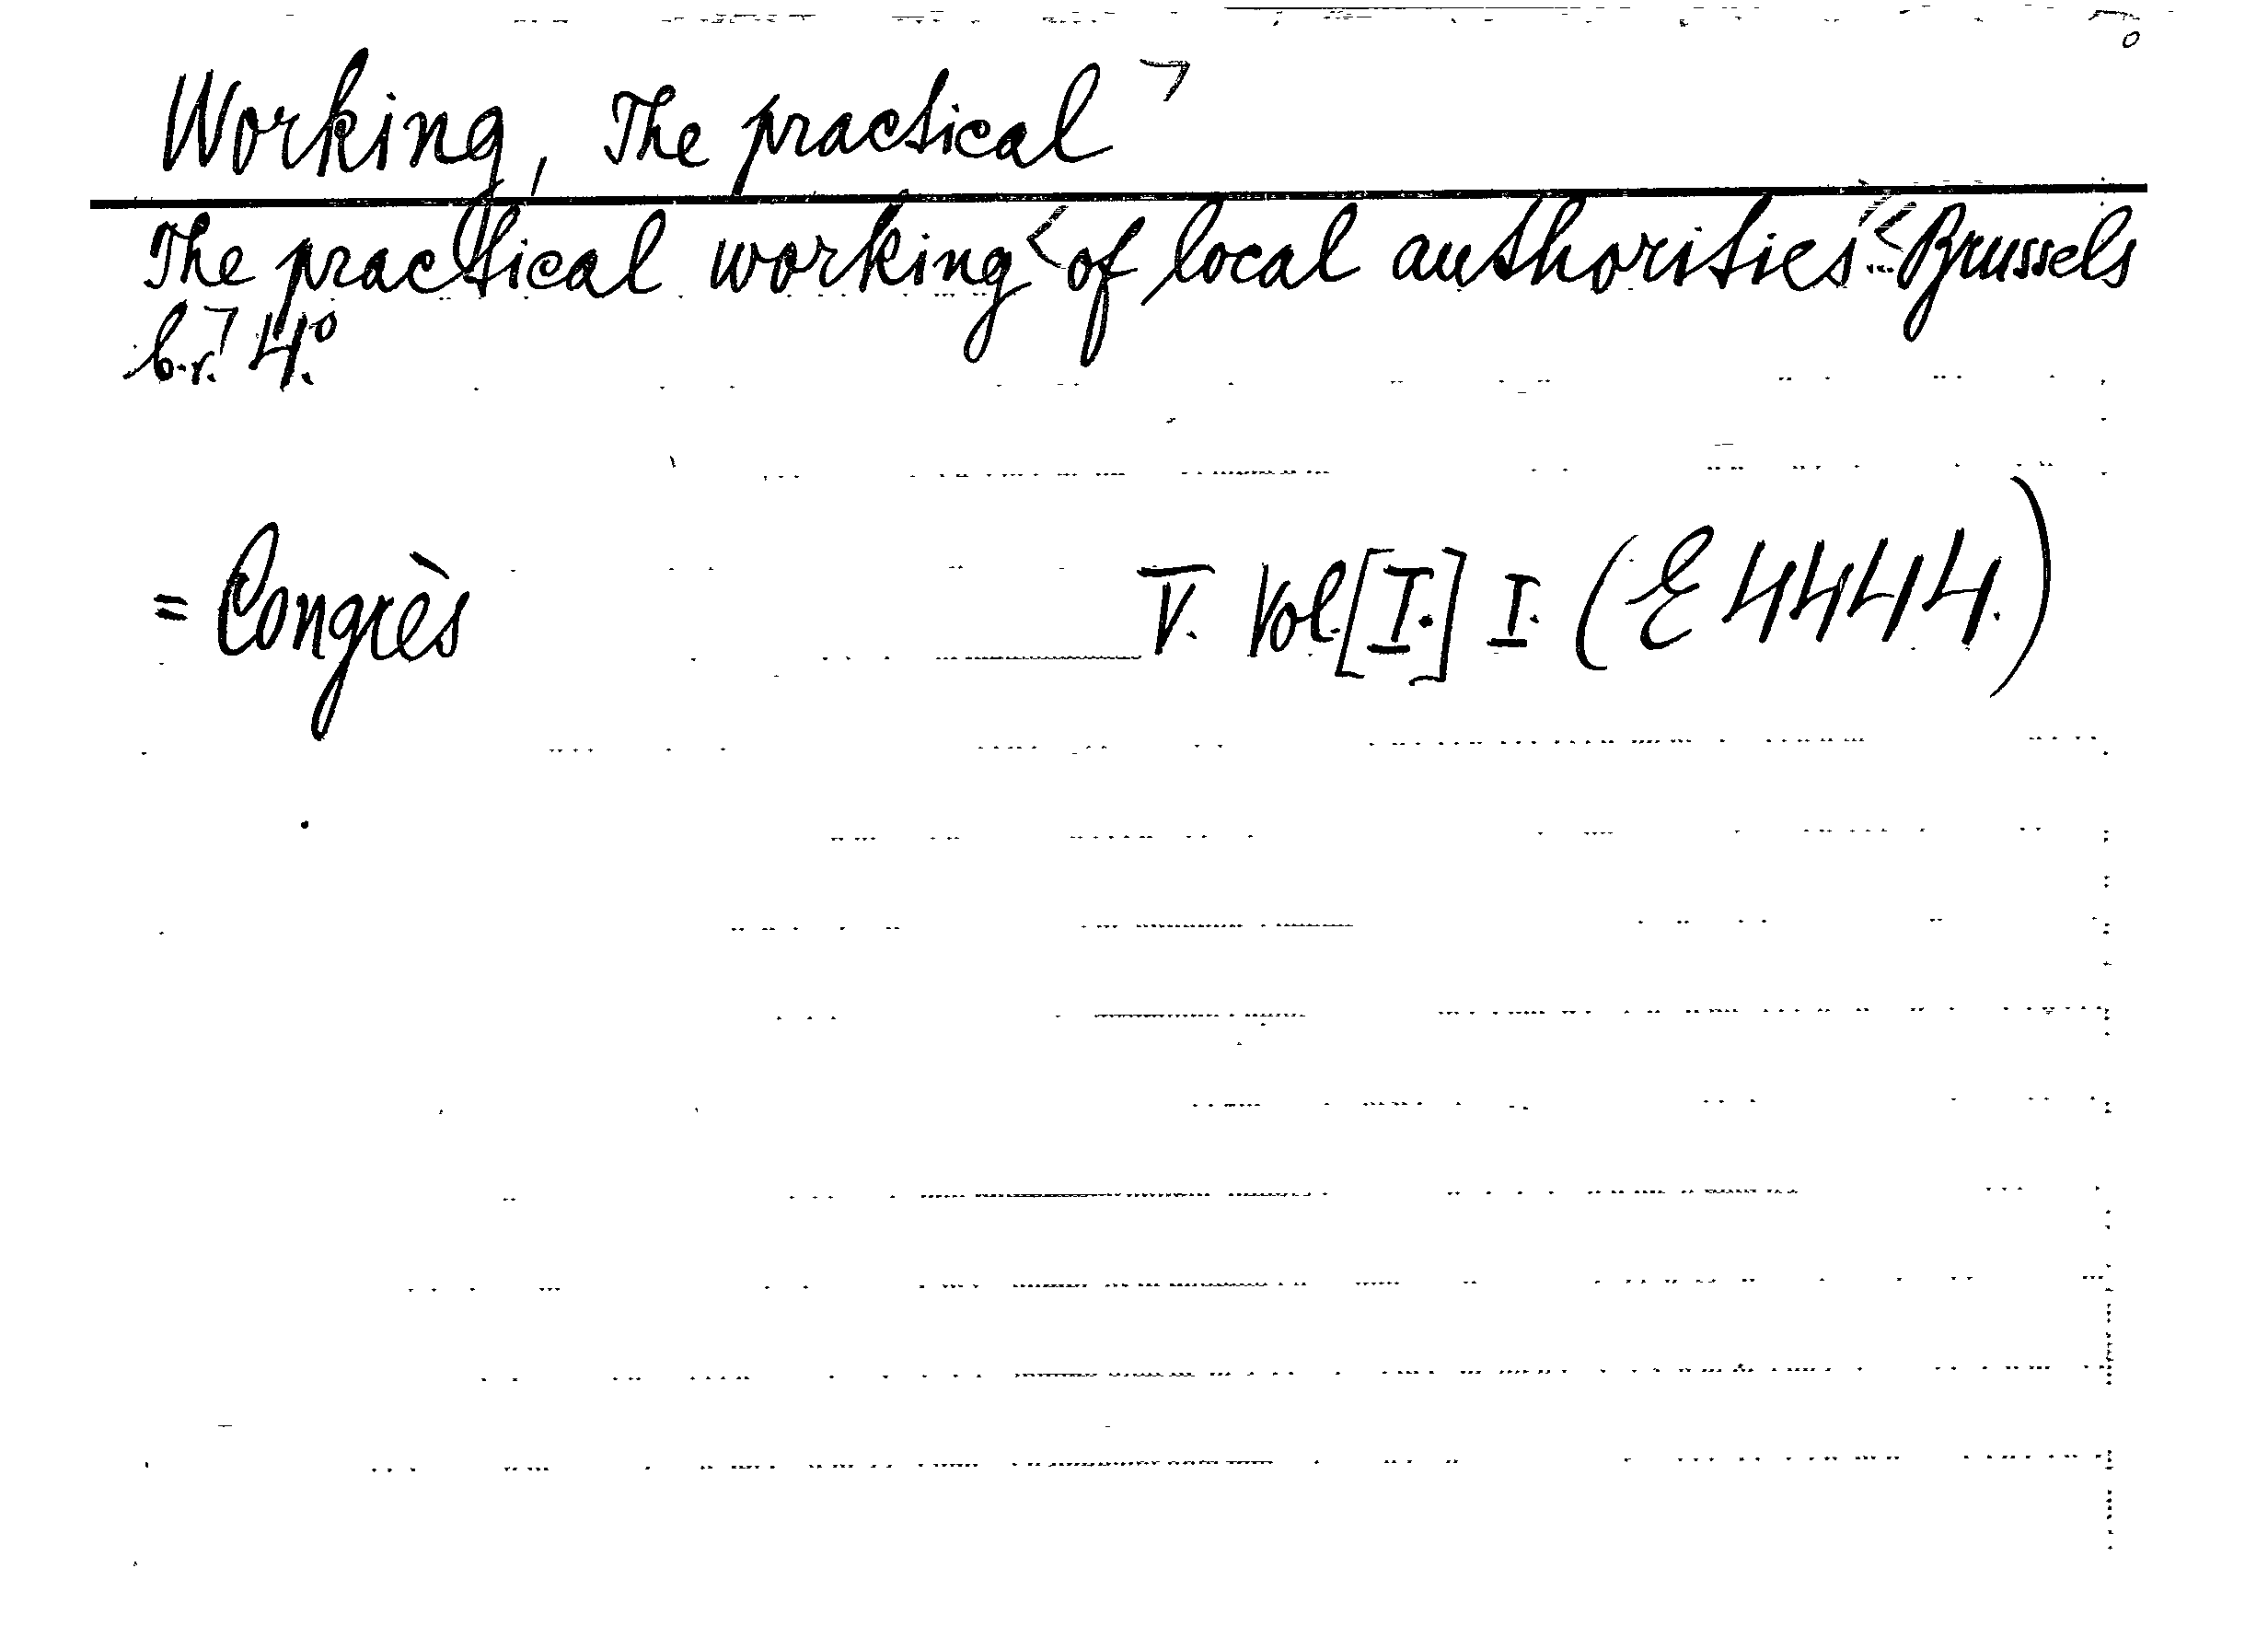 Working, The practical ¬
The practical working < of local authorities." < Brussels
b.r.¬ 4.°
= Congrès V. Vol.[I.] I. (E 4444.)